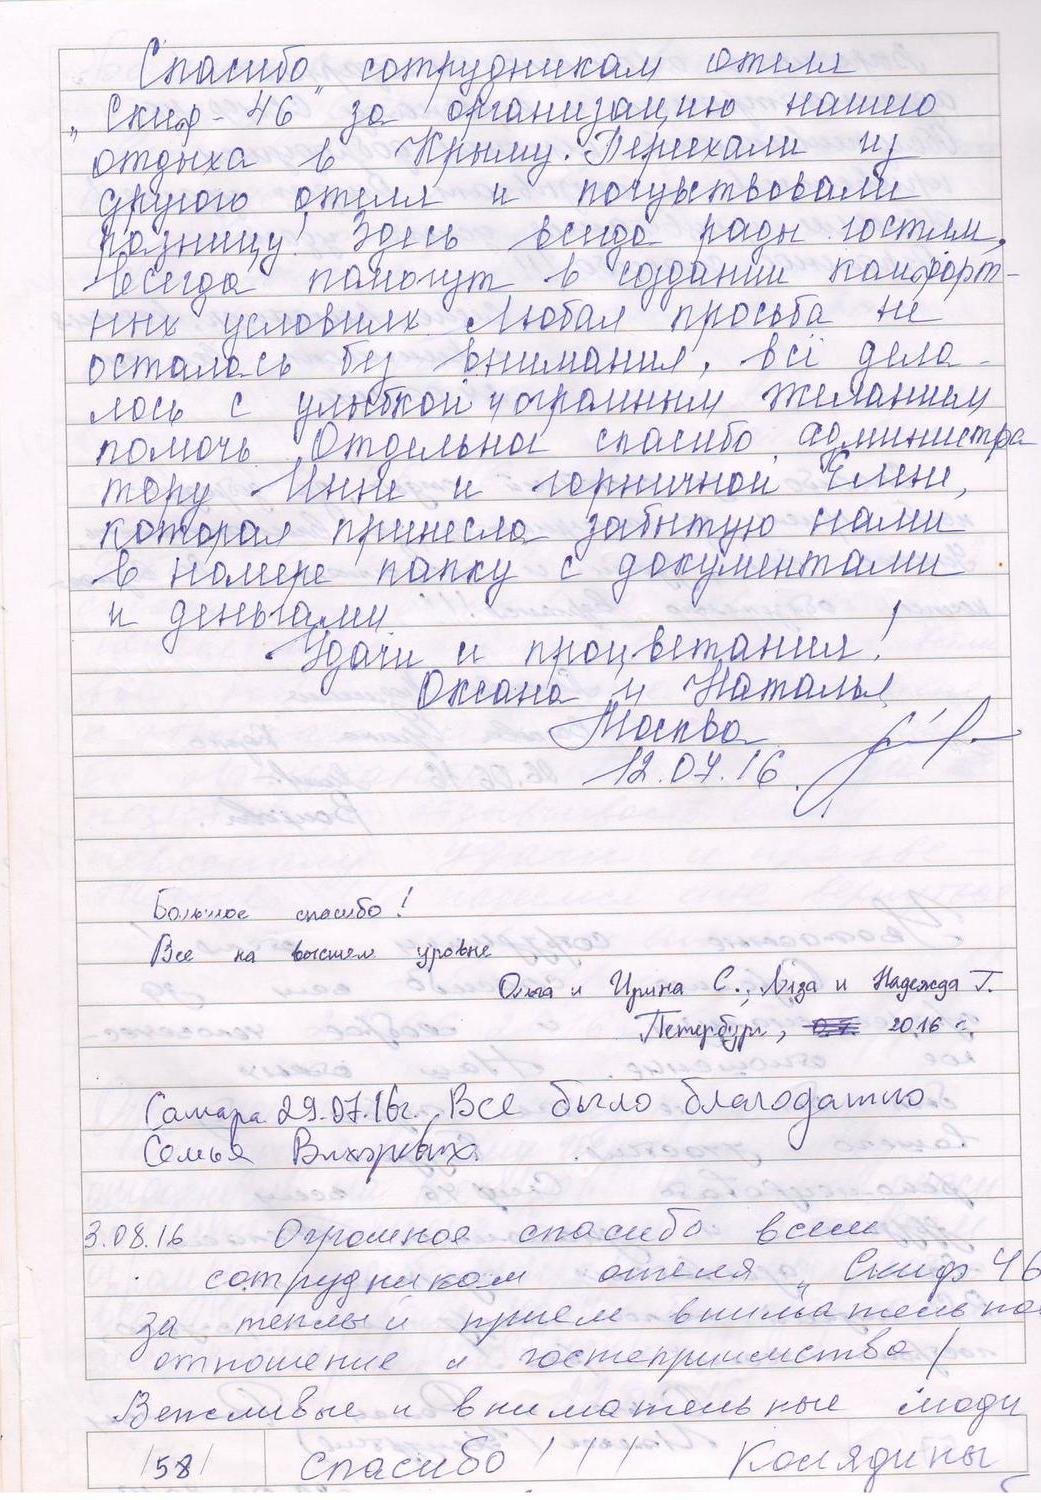 Спасибо сотрудникам отеля
„Скиф-46" за организацию нашего
отдыха в Крыму. Переехали из
другого отеля и почувствовали
разницу! Здесь всегда рады гостям,
всегда помогут в создании комфорт-
ных условиях Любая просьба не
осталась без внимания, всё дела-
лось с улыбкой и огромным желанием
помочь Отдельное спасибо администра
тору Инне и горничной Елене,
которая принесла забытую нами
в номере папку с документами
и деньгами
Удачи и процветания!
Оксана и Наталья
Москва
12.07.16
Большое спасибо!
Все на высшем уровне
Ольга и Ирина С., Лиза и Надежда Г.
Петербург, 2016 г.
Самара 29.07.16г. Все было благодатно
Семья
3.08.16 Огромное спасибо всем
сотрудником отеля „Скиф 46
за теплый прием внимательное
отношение и гостеприимство!
Вежливые и внимательные люди
58 Спасибо!!! Колядины